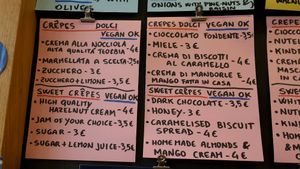 OLIVES
CRÊPES DOLCI
VEGAN OK
• CREMA ALLA NOCCIOLA
ALTA QUALITÀ - 4€
• MARMELLATA A SCELTA - 3,5€
• ZUCCHERO - 3€
• ZUCCHERO + LIMONE - 3,5€
SWEET CRÊPES VEGAN OK
• HIGH QUALITY
HAZELNUT CREAM - 4€
• JAM OF YOUR CHOICE - 3,5€
• SUGAR - 3€
• SUGAR + LEMON JUICE - 3,5€
ONIONS WITH PINE-NUTS &
RAISIN
CREPES DOLCI VEGAN OK
• CIOCCOLATO FONDENTE - 3,5€
• MIELE - 3€
• CREMA DI BISCOTTI
AL CARAMELLO - 4€
• CREMA DI MANDORLE
MANGO FATTA IN CASA - 4€
SWEET CRÊPES VEGAN OK
• DARK CHOCOLATE - 3,5€
• HONEY - 3€
• CARAMELISED BISCUIT
SPREAD - 4€
• HOME MADE ALMONDS &
MANGO CREAM - 4€